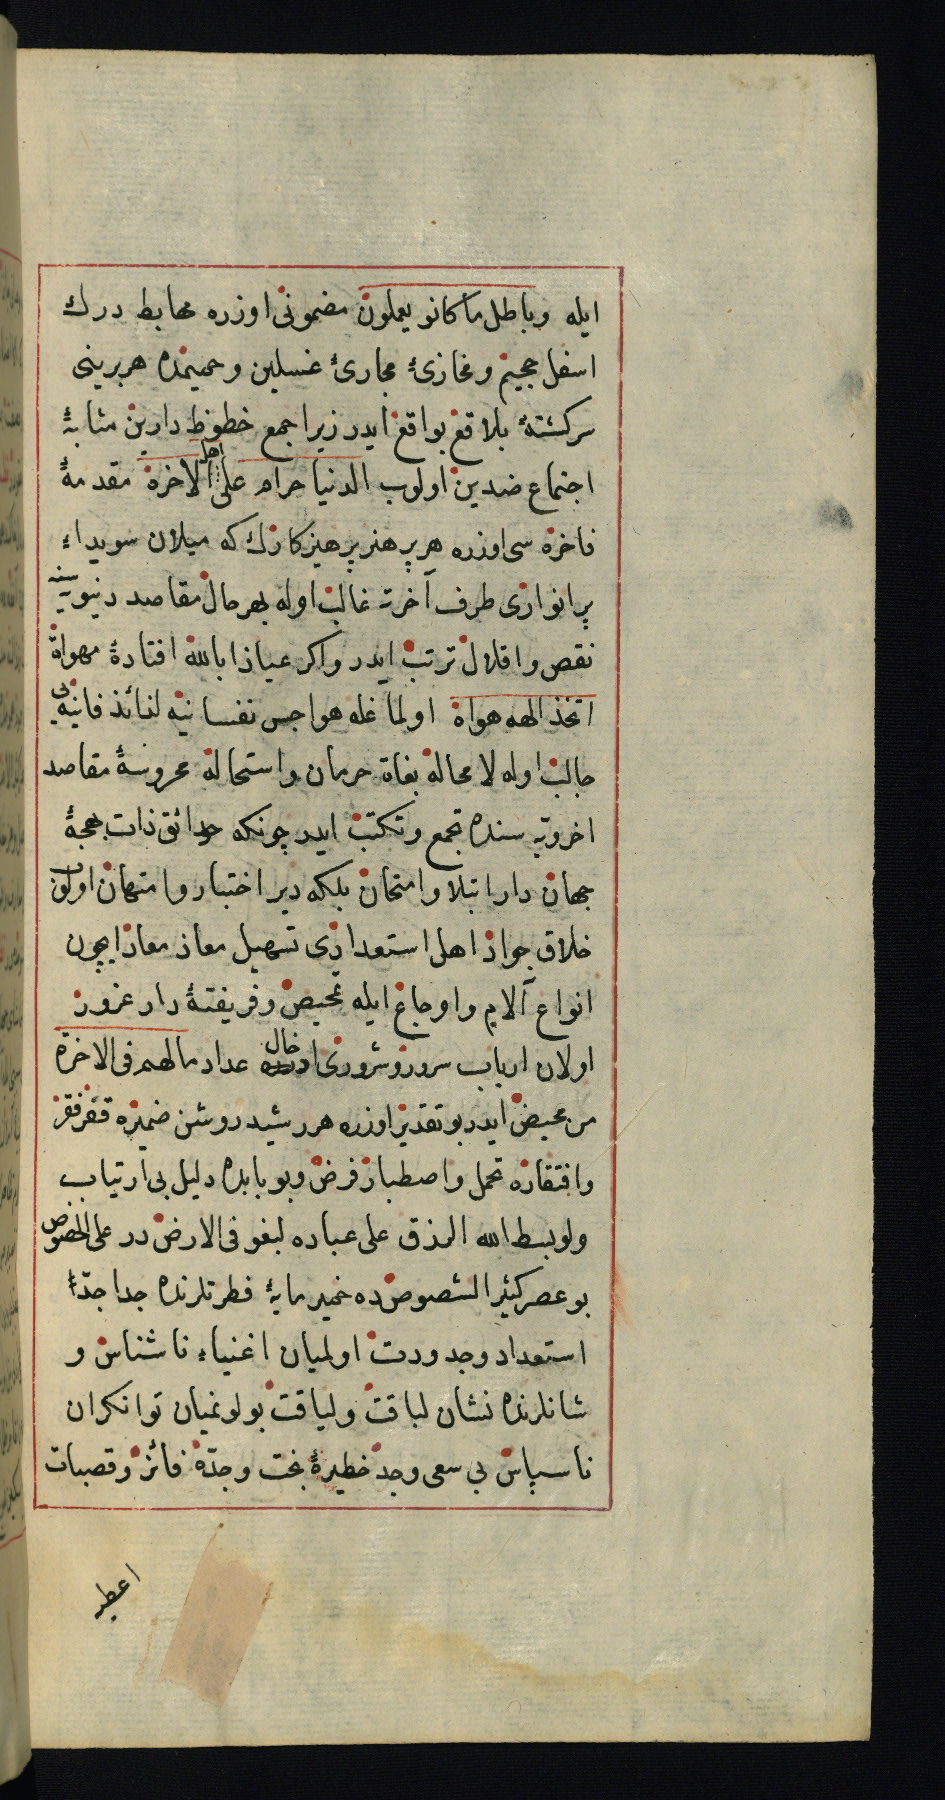 ايله وباطل ما كانوا يعملون مضمونى اوزره مهابط درك
اسفل جحيم و مخازئ مجارئ غسلين و حميمده هر برينى
سركشتهٔ بلاقع بواقع ايدر زيرا جمع حظوظ دارين مثابهٔ
اجتماع ضدين اولوب الدنيا حرام على اهل الاخرة مقدمهٔ
فاخره سى اوزره هر پر هنر پرهيزكارك كه ميلان سويداء
پر انوارى طرف آخرته غالب اوله بهرحال مقاصد دنيويه سنه
نقص و اقلال ترتب ايدر و اكر عياذا بالله افتادهٔ مهواة
اتخذ الهه هواه اولمغله هواجس نفسانيه لذائذ فانيه يى
جالب اوله لا محاله بغاة حرمان و استحاله محروسهٔ مقاصد
اخرويه سنده تجمع و تكتب ايدر چونكه حدائق ذات بهجهٔ
جهان دار ابتلا و امتحان بلكه دير اختبار و امتهان اولوب
خلاق جواد اهل استعدادى تسهيل معاد معاد ايچون
انواع آلام و اوجاع ايله تمحيص و فريفتهٔ دار غرور
اولان ارباب سرور و شرورى ادخال عداد ما لهم فى الاخرة
من محيص ايدر بو تقدير اوزره هر رشيد روشن ضميره قفر فقر
و افتقاره تحمل و اصطبار فرض و بو بابده دليل بى ارتياب
ولو بسط الله الرزق على عباده لبغو فى الارض در على الخصوص
بو عصر كثير الشصوصده خمير مايهٔ فطرتلرنده جدا جدّهٔ
استعداد وجد ودت اولميان اغنياء ناشناس و
شانلرنده نشان لباقت و لياقت بولونميان توانكران
ناسپاس بى سعى وجد خطيرهٔ بخت وجدّه فائز و قصبات
اعطيه